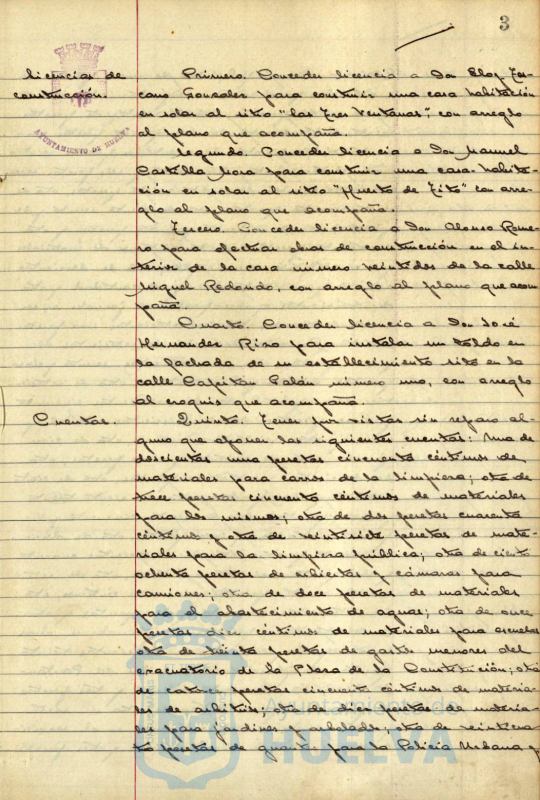 3
licencias de
construcción.
AYUNTAMIENTO DE HUELVA
Primero. Conceder licencia a Don Eloy
cano Gonzalez para construir una casa habitación
en solar al sitio "las Tres Ventanas", con arreglo
al plano que acompaña.
Segundo. Conceder licencia a Don Manuel
Castilla Mora para construir una casa-habita-
ción en solar al sitio "Huerto de Tito" con arre-
glo al plano que acompaña.
Tercero. Conceder licencia a Don Alonso Rome-
ro para efectuar obras de construcción en el in-
terior de la casa número veintidos de la calle
Miguel Redondo, con arreglo al plano que acom
paña.
Cuarto. Conceder licencia a Don José
Hernandez Rizo para instalar un toldo en
la fachada de su establecimiento sito en la
calle Capitán Galán número uno, con arreglo
al croquis que acompaña.
Cuentas.
Quinto. Tener por vistas sin reparo al-
guno que oponer las siguientes cuentas: Una de
doscientas una pesetas cincuenta céntimos de
materiales para carros de la limpieza; otra de
trece pesetas cincuenta céntimos de materiales
para los mismos; otra de dos pesetas cuarenta
céntimos y otra de veintisiete pesetas de mate-
riales para la limpieza pública; otra de ciento
ochenta pesetas de cubiertas y cámaras para
camiones; otra de doce pesetas de materiales
para el abastecimiento de aguas; otra de once
pesetas diez céntimos de materiales para escuelas
otra de treinta pesetas de gastos menores del
evacuatorio de la Plaza de la Constitución; otra
de catorce pesetas cincuenta céntimos de materia-
les de arbitrios; otra de diez pesetas de materia-
les para jardines y arbolado; otra de veinticua-
tro pesetas de guantes para la Policía Urbana y
Ayuntamiento de
HUELVA